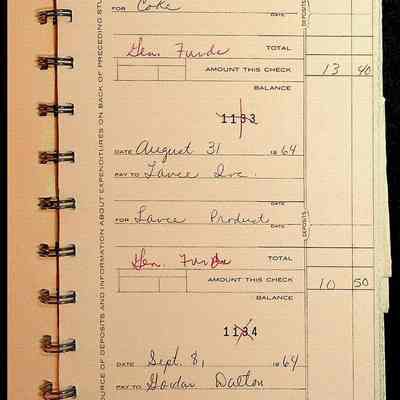 FOR Coke
DATE
DEPOSITS
Gen. Funds TOTAL
AMOUNT THIS CHECK 13 40
BALANCE
1133
DATE August 31 1964
PAY TO Lance Inc.
DATE
FOR Lance Product
DATE
DEPOSITS
Gen. Funds TOTAL
AMOUNT THIS CHECK 10 50
BALANCE
1134
DATE Sept. 8, 1964
PAY TO Dalton
OURCE OF DEPOSITS AND INFORMATION ABOUT EXPENDITURES ON BACK OF PRECEDING STU